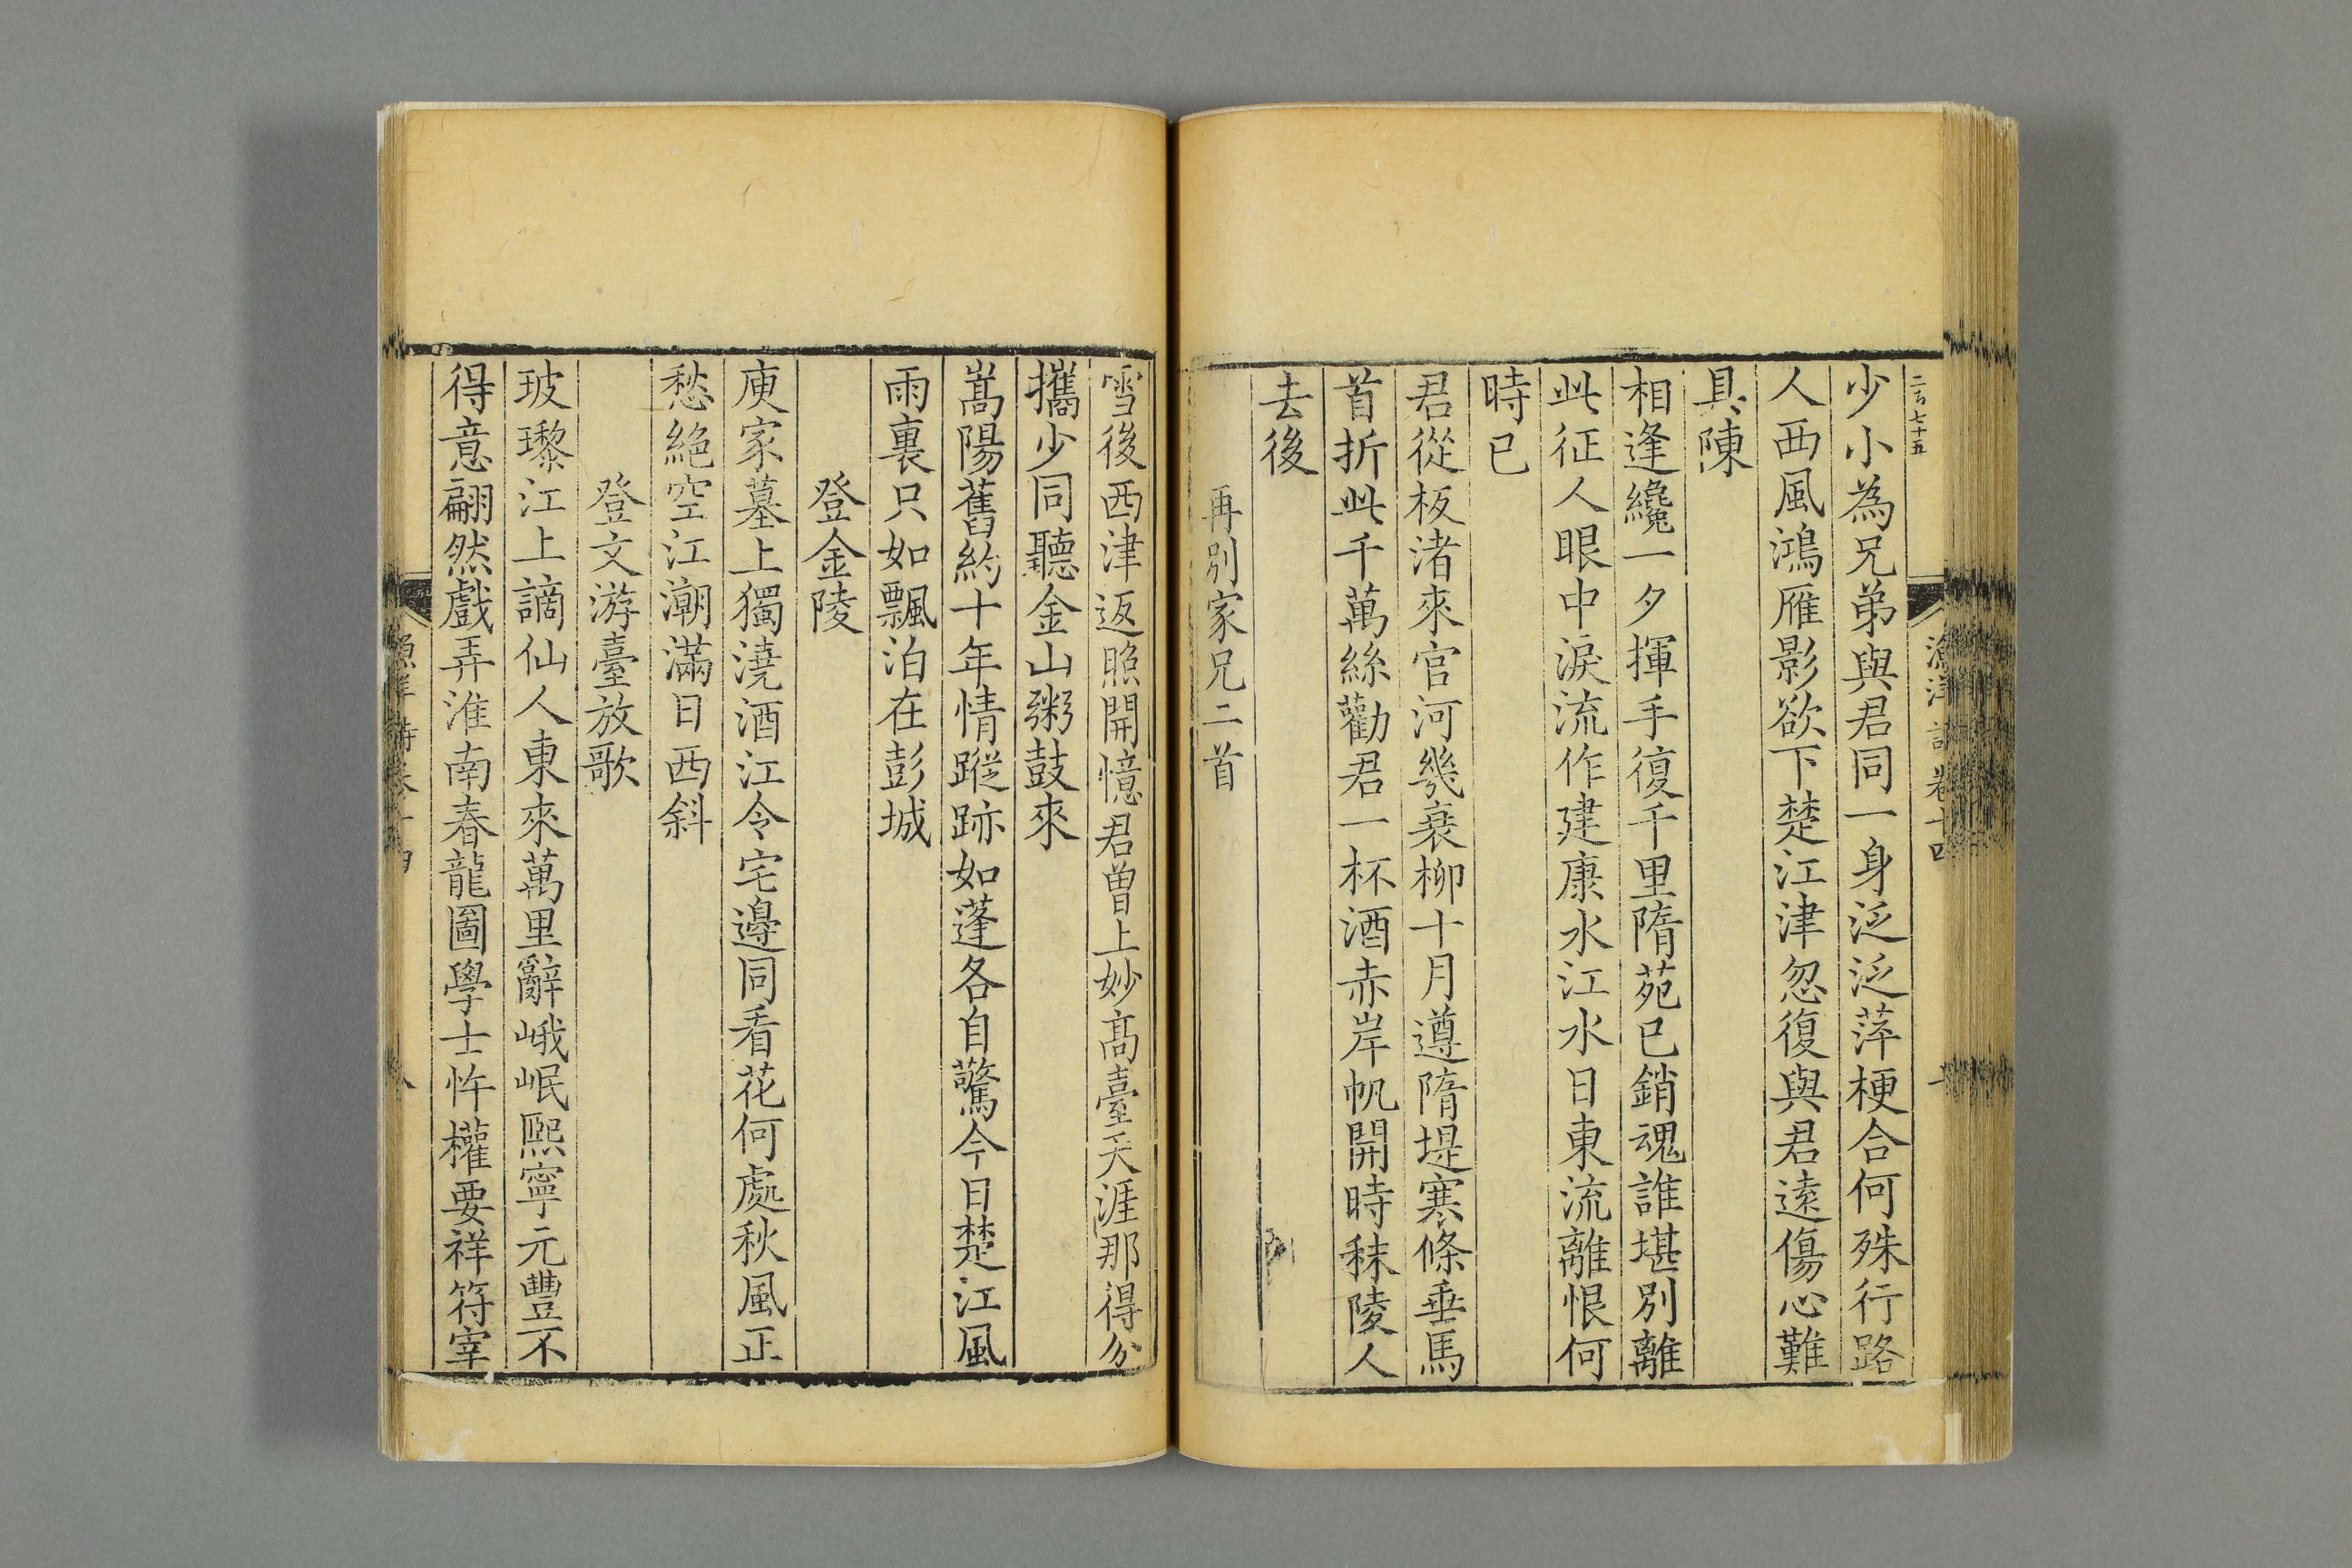 二百七十五
漁洋詩卷十四
少小為兄弟與君同一身泛泛萍梗合何殊行路
人西風鴻雁影欲下楚江津忽復與君遠傷心難
具陳
相逢纔一夕揮手復千里隋苑已銷魂誰堪別離
此征人眼中淚流作建康水江水日東流離恨何
時已
君從板渚來官河幾衰柳十月遵隋堤寒條垂馬
首折此千萬絲勸君一杯酒赤岸帆開時秣陵人
去後
再別家兄二首
雪後西津返照開憶君曾上妙高臺天涯那得分
攜少同聽金山粥鼓來
嵩陽舊約十年情蹤跡如蓬各自驚今日楚江風
雨裏只如飄泊在彭城
登金陵
庾家墓上獨澆酒江令宅邊同看花何處秋風正
愁絕空江潮滿日西斜
登文游臺放歌
玻瓈江上謫仙人東來萬里辭峨岷熙寧元豐不
得意翩然戲弄淮南春龍圖學士忤權要祥符宰
漁洋詩卷十四
八